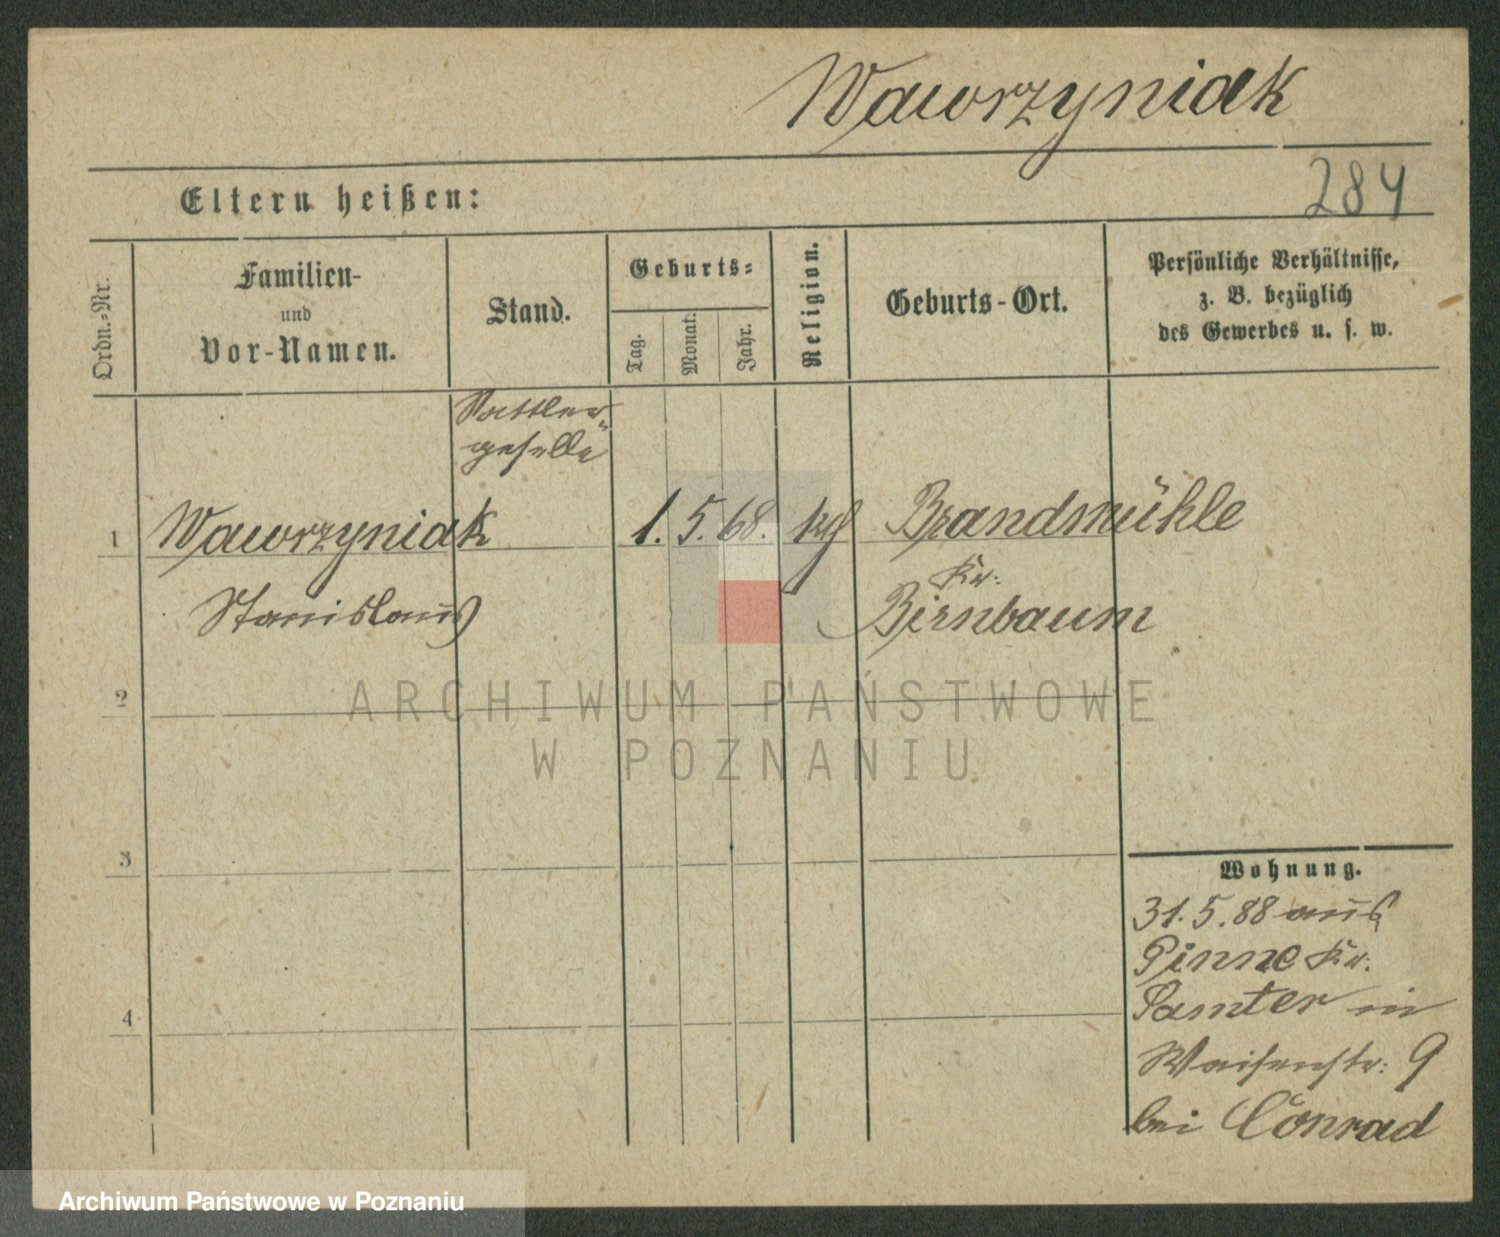 Wawrzyniak
284
Eltern heißen:
Ordn.-Nr.
Familien-
und
Vor-Namen.
Stand.
Geburts-
Tag.
Monat.
Jahr.
Religion.
Geburts-Ort.
Persönliche Verhältnisse,
z. B. bezüglich
des Gewerbes u. s. w.
Sattler-
geselle
1 Wawrzyniak 1. 5. 68. kth Brandmühle
Kr:
Stanislaus Birnbaum
2
ARCHIWUM PAŃSTWOWE
W POZNANIU
3
Wohnung.
31. 5. 88 aus
Pinne Kr:
4 Samter in
Waisenstr: 9
bei Conrad
Archiwum Państwowe w Poznaniu